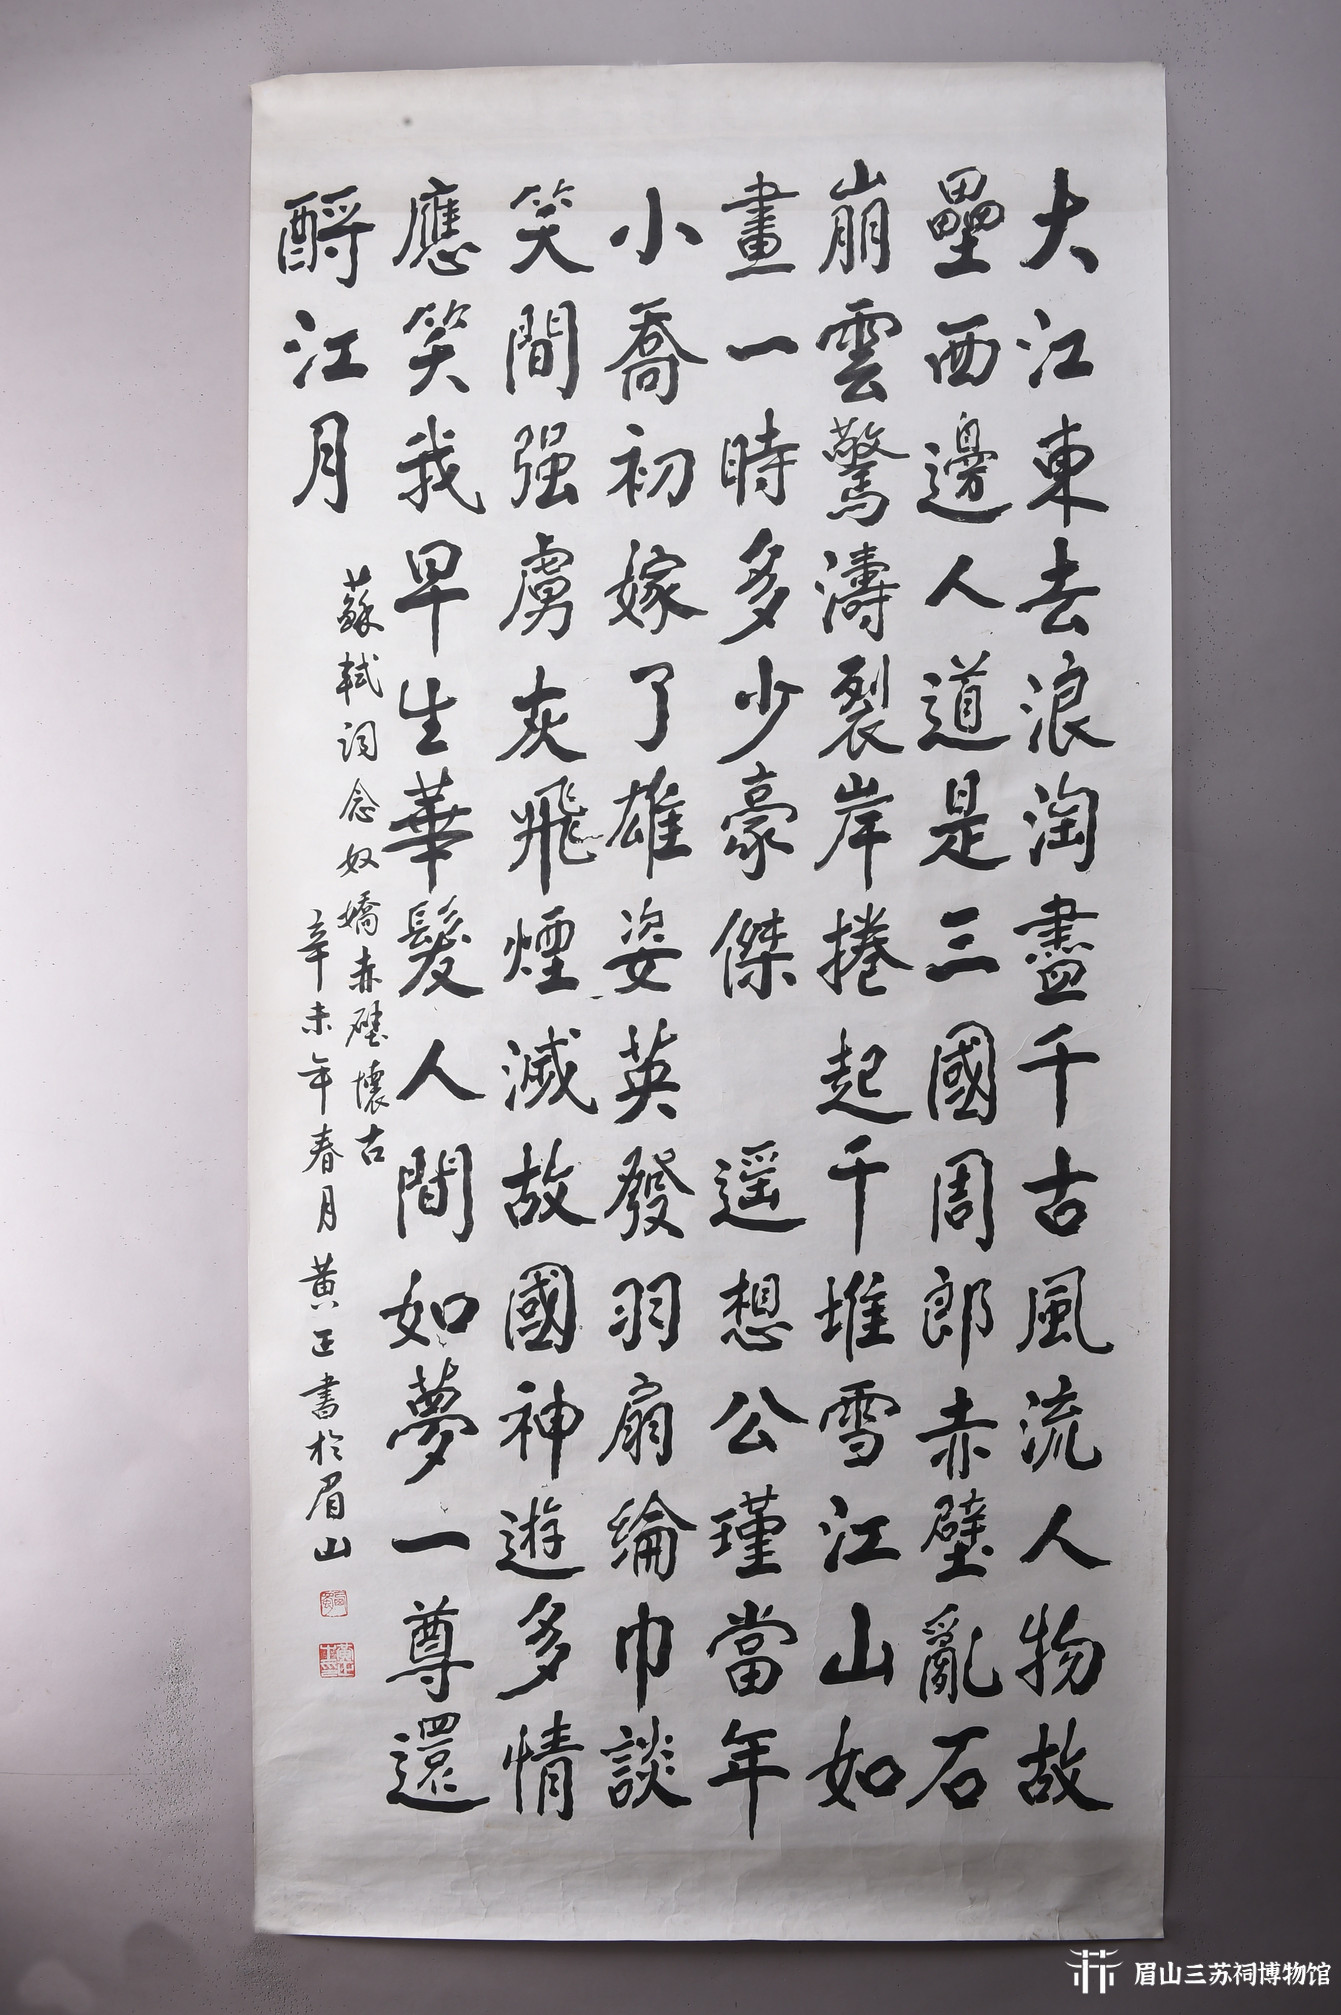 大江東去浪淘盡千古風流人物故
壘西邊人道是三國周郎赤壁亂石
崩雲驚濤裂岸捲起千堆雪江山如
畫一時多少豪傑 遥想公瑾當年
小喬初嫁了雄姿英發羽扇綸巾談
笑間强虜灰飛煙滅故國神遊多情
應笑我早生華髮人間如夢一尊還
酹江月
蘇軾词念奴嬌赤壁懷古
辛未年春月黄正書於眉山
眉山三苏祠博物馆